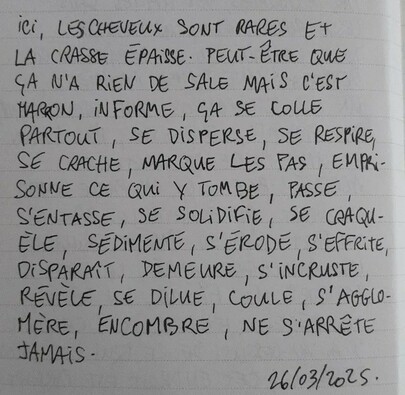 ici, LES CHEVEUX SONT RARES ET
LA CRASSE ÉPAISSE. PEUT-ÊTRE QUE
ÇA N'A RIEN DE SALE MAIS C'EST
MARRON, INFORME, ÇA SE COLLE
PARTOUT, SE DISPERSE, SE RESPIRE,
SE CRACHE, MARQUE LES PAS, EMPRI-
SONNE CE QUI Y TOMBE, PASSE,
S'ENTASSE, SE SOLIDIFIE, SE CRAQU-
ÈLE, SÉDIMENTE, S'ÉRODE, S'EFFRITE,
DISPARAÎT, DEMEURE, S'INCRUSTE,
RÉVÈLE, SE DILUE, COULE, S'AGGLO-
MÈRE, ENCOMBRE, NE S'ARRÊTE
JAMAIS.
26/03/2025.